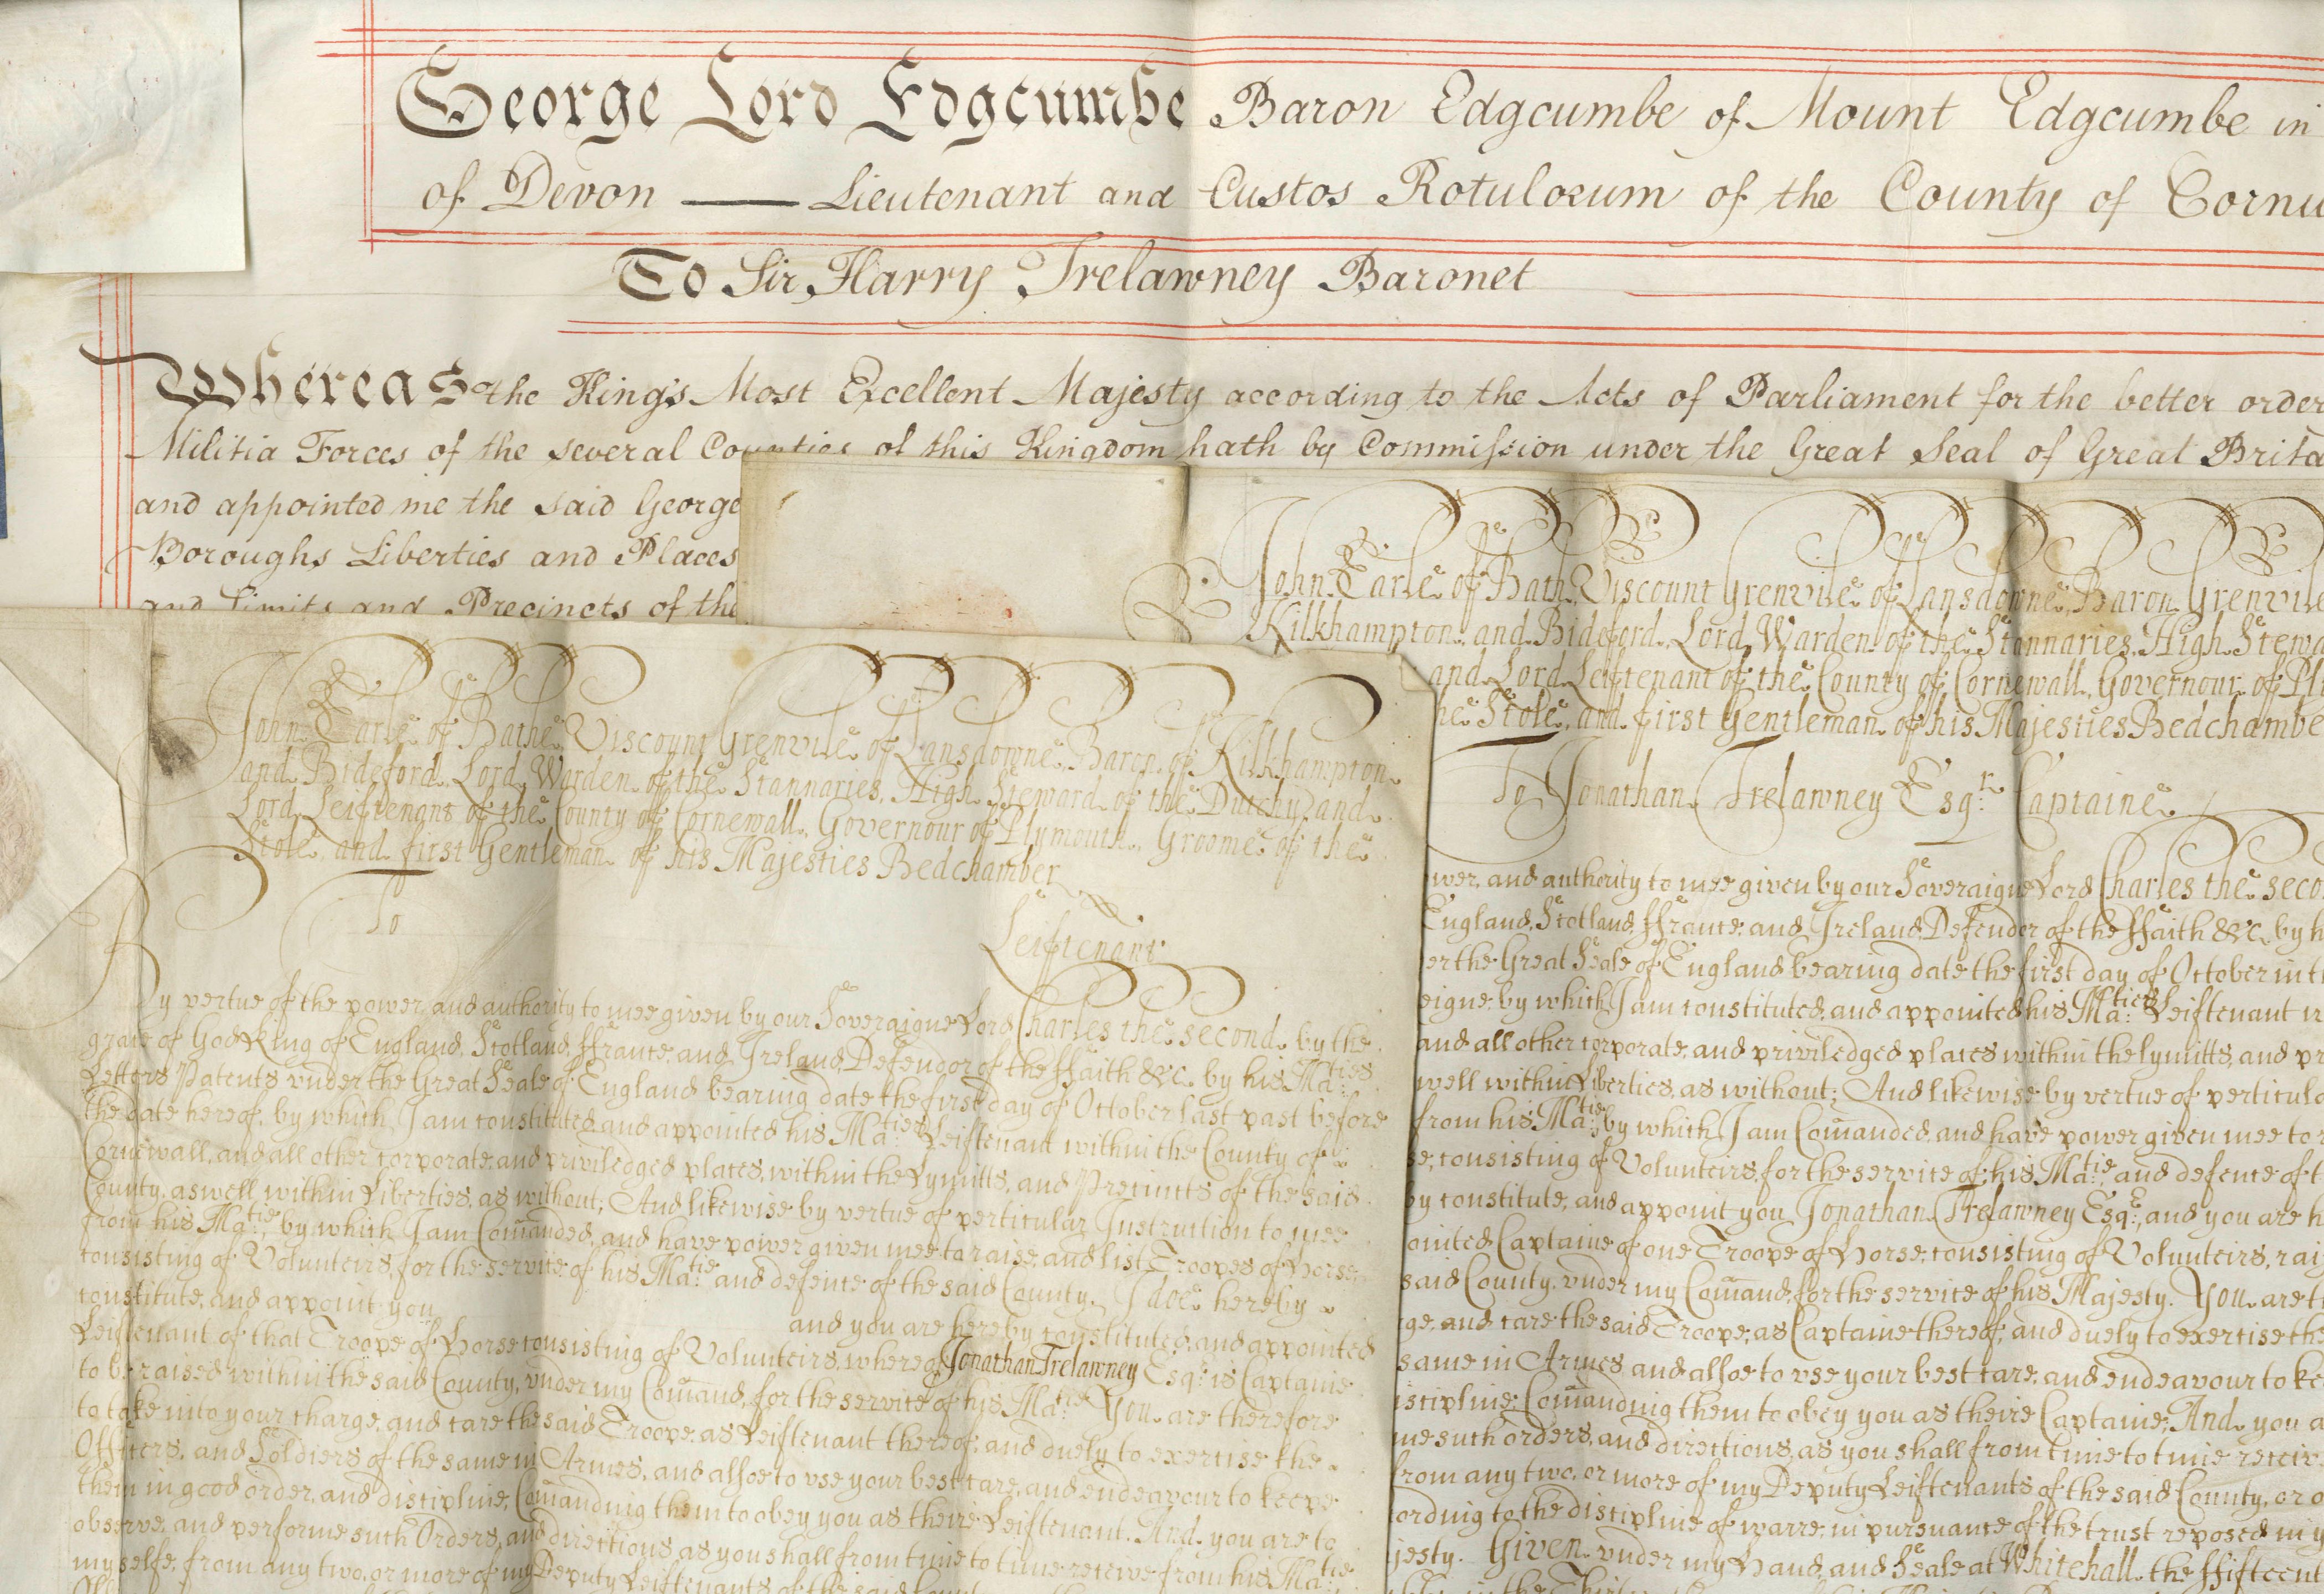 George Lord Edgcumbe Baron Edgcumbe of Mount Edgcumbe in
of Devon — Lieutenant and Custos Rotulorum of the County of Cornw
To Sir Harry Trelawney Baronet
Whereas the King's Most Excellent Majesty according to the Acts of Parliament for the better order
Militia Forces of the several Counties of this Kingdom hath by Commission under the Great Seal of Great Brita
and appointed me the said George
Boroughs Liberties and Places
and Limits and Precincts of the
John Earle of Bath, Viscount Grenvile of Lansdowne, Baron Grenvile
Kilkhampton, and Bideford, Lord Warden of the Stannaries, High Stewa
and Lord Leiftenant of the County of Cornewall, Governour of Pl
he Stole, and first Gentleman of his Majesties Bedchambe
To Jonathan Trelawney Esqr. Captaine
wer, and authority to mee given by our Soveraigne Lord Charles the seco
England, Scotland, ffrance, and Ireland, Defender of the ffaith &c. by h
er the Great Seale of England bearing date the first day of October in t
eigne, by which I am constituted, and appointed his Maties Leiftenant
and all other corporate, and priviledged places within the lymitts, and pr
well within Liberties, as without; And likewise by vertue of perticula
from his Matie, by which I am Comanded, and have power given mee to r
se, consisting of Volunteirs, for the service of his Matie, and defence of t
by constitute, and appoint you Jonathan Trelawney Esqr, and you are h
ointed Captaine of one Troope of Horse, consisting of Volunteirs, rai
said County, under my Comand, for the service of his Majesty. You are t
ge, and care the said Troope, as Captaine thereof, and duely to exercise the
same in Armes and allsoe to use your best care, and endeavour to ke
iscipline, Comanding them to obey you as theire Captaine, And you a
me such orders, and directions, as you shall from time to time receiv
from any two, or more of my Deputy Leiftenants of the said County, or o
ording to the discipline of warre, in pursuance of the trust reposed in y
jesty. Given under my Hand, and Seale at Whitehall the ffifteent
John Earle of Bathe, Viscount Grenvile of Lansdowne, Baron of Kilkhampton
and Bideford, Lord Warden of the Stannaries, High Steward of the Dutchy, and
Lord Leiftenant of the County of Cornewall, Governour of Plymouth, Groome of the
Stole, and first Gentleman of his Majesties Bedchamber
To
Leiftenant
By vertue of the power, and authority to mee given by our Soveraigne Lord Charles the second, by the
grace of God King of England, Scotland, ffrance, and Ireland, Defendor of the ffaith &c. by his Maties
Letters Patents under the Great Seale of England bearing date the first day of October last past before
the date hereof, by which I am constituted, and appointed his Maties Leiftenant within the County of
Cornewall, and all other corporate, and priviledged places, within the Lymitts, and Precincts of the said
County, aswell within Liberties, as without; And likewise by vertue of perticular Instruction to mee
from his Matie, by which I am Comanded, and have power given mee to raise, and list Troopes of Horse,
consisting of Volunteirs, for the service of his Matie, and defence of the said County, I doe hereby
constitute, and appoint you
and you are hereby constituted, and appointed
Leiftenant of that Troope of Horse consisting of Volunteirs, whereof Jonathan Trelawney Esqr. is Captaine
to be raised within the said County, under my Comand, for the service of his Matie. You are therefore
to take into your charge, and care the said Troope, as Leiftenant thereof, and duely to exercise the
Officers, and Soldiers of the same in Armes, and allsoe to use your best care, and endeavour to keepe
them in good order, and discipline, Comanding them to obey you as theire Leiftenant. And you are to
observe, and performe such Orders, and directions, as you shall from time to time receive from his Matie
my selfe, from any two, or more of my Deputy Leiftenants of the said